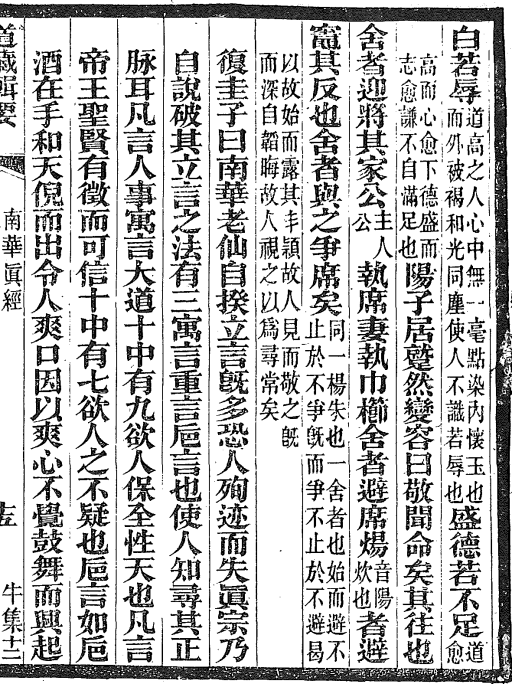 白若辱道高之人心中無一毫點染內懷玉也而外被褐和光同塵使人不識若辱也盛德若不足道愈
高而心愈下德盛而志愈謙不自滿足也陽子居蹵然變容曰敬聞命矣其往也
舍者迎將其家公主人公執席妻執巾櫛舍者避席煬音陽炊也者避
竈其反也舍者與之爭席矣同一楊朱也一舍者也始而避不止於不爭既而爭不止於不避曷
以故始而露其丰穎故人見而敬之既而深自韜晦故人視之以爲尋常矣
復圭子曰南華老仙自揆立言旣多恐人殉迹而失眞宗乃
自說破其立言之法有三寓言重言巵言也使人知尋其正
脉耳凡言人事寓言大道十中有九欲人保全性天也凡言
帝王聖賢有徵而可信十中有七欲人之不疑也巵言如巵
酒在手和天倪而出令人爽口因以爽心不覺鼓舞而興起
道藏輯要
南華眞經
牛集十二